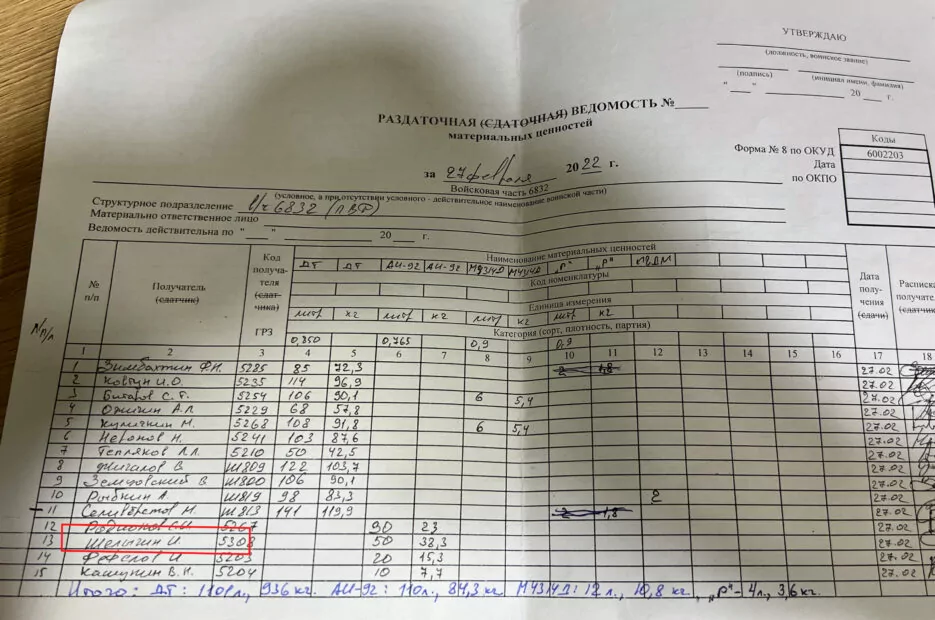 УТВЕРЖДАЮ
(должность, воинское звание)
(подпись) (инициал имени, фамилия)
" " 20 г.
РАЗДАТОЧНАЯ (СДАТОЧНАЯ) ВЕДОМОСТЬ №
материальных ценностей
Коды
Форма № 8 по ОКУД 6002203
Дата
по ОКПО
за 27 февраля 2022 г.
Войсковая часть 6832
(условное, а при отсутствии условного - действительное наименование воинской части)
Структурное подразделение в/ч 6832 (ПВФ)
Материально ответственное лицо
Ведомость действительна по " " 20 г.
№ п/п Получатель (сдатчик) Код получателя (сдатчика) ГРЗ Наименование материальных ценностей Дата получения (сдачи) Расписка получателя (сдатчика)
ДТ ДТ АИ-92 АИ-92 М43/4Д М43/4Д "Р" "Р"
Код номенклатуры
Единица измерения
литр кг литр кг литр кг литр кг
Категория (сорт, плотность, партия)
0,850 0,765 0,9 0,9
N п/п
1 2 3 4 5 6 7 8 9 10 11 12 13 14 15 16 17 18
1 Зимбахтин Ф.Н. 5285 85 72,3 2 1,8 27.02
2 Ковтун И.О. 5235 114 96,9 27.02
3 Битаров С.Г. 5254 106 90,1 6 5,4 27.02
4 Ожигин А.П. 5229 68 57,8 27.02
5 Куличкин М. 5268 108 91,8 6 5,4 27.02
6 Неронов Н. 5241 103 87,6 27.02
7 Тепляков Л.Л. 5210 50 42,5 27.02
8 Жигалов В. Ш809 122 103,7 27.02
9 Земцовский В Ш800 106 90,1 27.02
10 Рыбкин А. Ш819 98 83,3 2 27.02
11 Селивёрстов М. Ш813 141 119,9 2 1,8 27.02
12 Родионов С.И. 5267 30 23 27.02
13 Шелыгин И. 5308 50 38,3 27.02
14 Фефелов И. 5203 20 15,3 27.02
15 Кашукин В.Н. 5204 10 7,7 27.02
Итого: ДТ: 1101л., 936 кг. АИ-92: 110л., 84,3 кг. М43/4Д: 12 л., 10,8 кг., "Р"- 4л., 3,6кг.